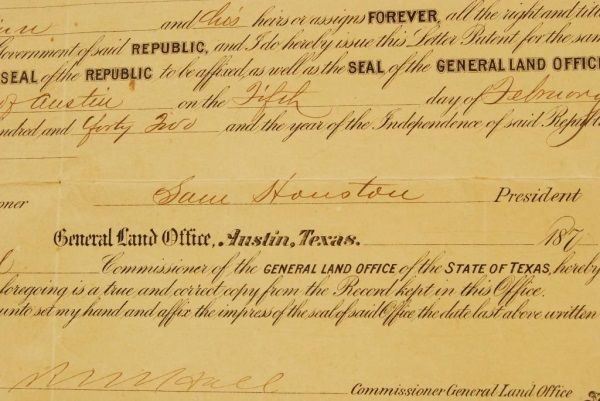 and his heirs or assigns FOREVER, all the right and titl
Government of said REPUBLIC, and I do hereby issue this Letter Patent for the same
SEAL of the REPUBLIC to be affixed, as well as the SEAL of the GENERAL LAND OFFIC
of Austin on the Fifth day of February
ndred and forty Two and the year of the Independence of said Republi
oner Sam Houston President
General Land Office, Austin, Texas. 187
Commissioner of the GENERAL LAND OFFICE of the STATE OF TEXAS, hereby
foregoing is a true and correct copy from the Record kept in this Office.
unto set my hand and affix the impress of the seal of said Office the date last above written
Commissioner General Land Office